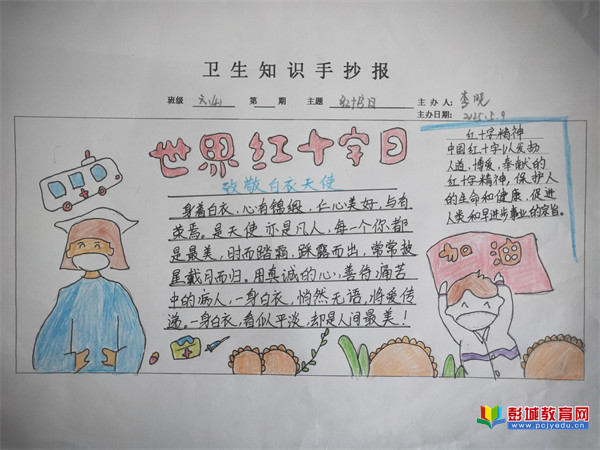 卫生知识手抄报
班级 六(4) 第 期 主题 红十字日 主办人: 李晓
主办日期: 2025.5.9
世界红十字日
致敬白衣天使
身着白衣,心有锦缎,仁心美好,与有
荣焉。是天使亦是凡人,每一个你都
是最美,时而踏霜,踩露而出,常常披
星戴月而归。用真诚的心,善待痛苦
中的病人,一身白衣,悄然无语,将爱传
递,一身白衣,看似平淡,却是人间最美!
红十字精神
中国红十字以发扬
人道,博爱,奉献的
红十字精神,保护人
的生命和健康,促进
人类和平进步事业的宗旨。
加油
彭城教育网
www.pcjyedu.cn